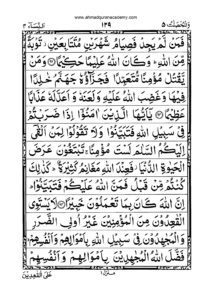 www.ahmadquranacademy.com
وَالْمُحْصَنٰتُ ۵ ۱۲۹ النِّسَآء ۴
فَمَنْ لَّمْ يَجِدْ فَصِيَامُ شَهْرَيْنِ مُتَتَابِعَيْنِ تَوْبَةً
مِّنَ اللّٰهِ وَكَانَ اللّٰهُ عَلِيْمًا حَكِيْمًا وَمَنْ
يَّقْتُلْ مُؤْمِنًا مُّتَعَمِّدًا فَجَزَآؤُهٗ جَهَنَّمُ خٰلِدًا
فِيْهَا وَغَضِبَ اللّٰهُ عَلَيْهِ وَلَعَنَهٗ وَاَعَدَّ لَهٗ عَذَابًا
عَظِيْمًا يٰۤاَيُّهَا الَّذِيْنَ اٰمَنُوْۤا اِذَا ضَرَبْتُمْ
فِيْ سَبِيْلِ اللّٰهِ فَتَبَيَّنُوْا وَلَا تَقُوْلُوْا لِمَنْ اَلْقٰۤى
اِلَيْكُمُ السَّلٰمَ لَسْتَ مُؤْمِنًا تَبْتَغُوْنَ عَرَضَ
الْحَيٰوةِ الدُّنْيَا فَعِنْدَ اللّٰهِ مَغَانِمُ كَثِيْرَةٌ كَذٰلِكَ
كُنْتُمْ مِّنْ قَبْلُ فَمَنَّ اللّٰهُ عَلَيْكُمْ فَتَبَيَّنُوْا
اِنَّ اللّٰهَ كَانَ بِمَا تَعْمَلُوْنَ خَبِيْرًا لَا يَسْتَوِي
الْقٰعِدُوْنَ مِنَ الْمُؤْمِنِيْنَ غَيْرُ اُولِي الضَّرَرِ
وَالْمُجٰهِدُوْنَ فِيْ سَبِيْلِ اللّٰهِ بِاَمْوَالِهِمْ وَاَنْفُسِهِمْ
فَضَّلَ اللّٰهُ الْمُجٰهِدِيْنَ بِاَمْوَالِهِمْ وَاَنْفُسِهِمْ
منزل۱
عَلَى الْقٰعِدِيْنَ